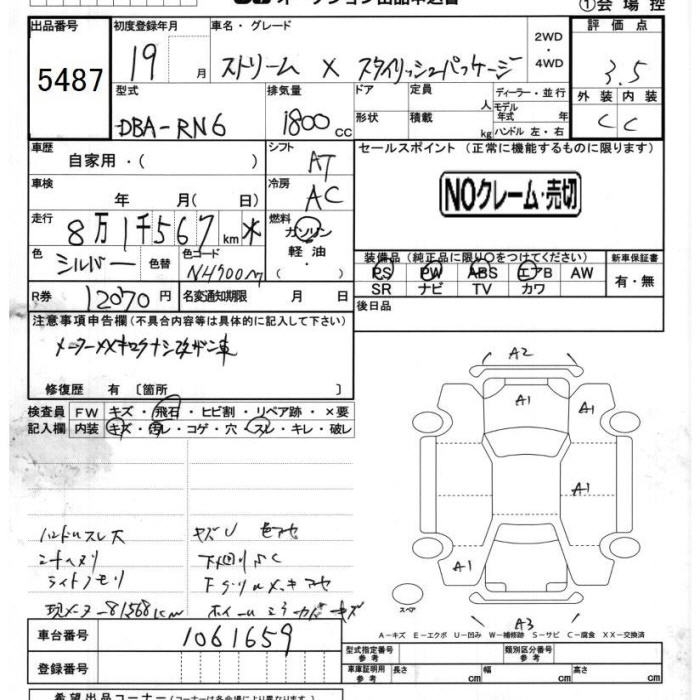 ①会場控
出品番号
5487
初度登録年月
19
月
車名・グレード
ストリーム X スタイリッシュパッケージ
2WD
・
4WD
評価点
3.5
外装 内装
C C
型式
DBA-RN6
排気量
1800
cc
ドア
形状
定員
人
積載
kg
ディーラー・並行
モデル
年式 年
ハンドル 左・右
車歴
自家用・( )
シフト
AT
車検
年 月( 日)
冷房
AC
走行
8万1千567 km
燃料
ガソリン
軽油
( )
色
シルバー
色替
色コード
NH700M
R券
12070 円
名変通知期限 月 日
セールスポイント (正常に機能するものに限ります)
NOクレーム・売切
装備品(純正品に限り○をつけてください)
PS PW ABS エアB AW
SR ナビ TV カワ
新車保証書
有・無
後日品
注意事項申告欄(不具合内容等は具体的に記入して下さい)
修復歴 有 〔箇所 〕
検査員
記入欄
FW キズ・飛石・ヒビ割・リペア跡・×要
内装 キズ・汚レ・コゲ・穴・スレ・キレ・破レ
ハンドルスレ大
シートヘタリ
ライトクモリ
現メーター81568km
キズU 色アセ
下回りサビ
A2
A1
A1
A1
A1
A3
スペア
A-キズ E-エクボ U-凹み W-補修跡 S-サビ C-腐食 XX-交換済
車台番号
1061659
登録番号
型式指定番号
参考
類別区分番号
参考
車庫証明用
参考
長さ cm 幅 cm 高さ cm
希望出品コーナー